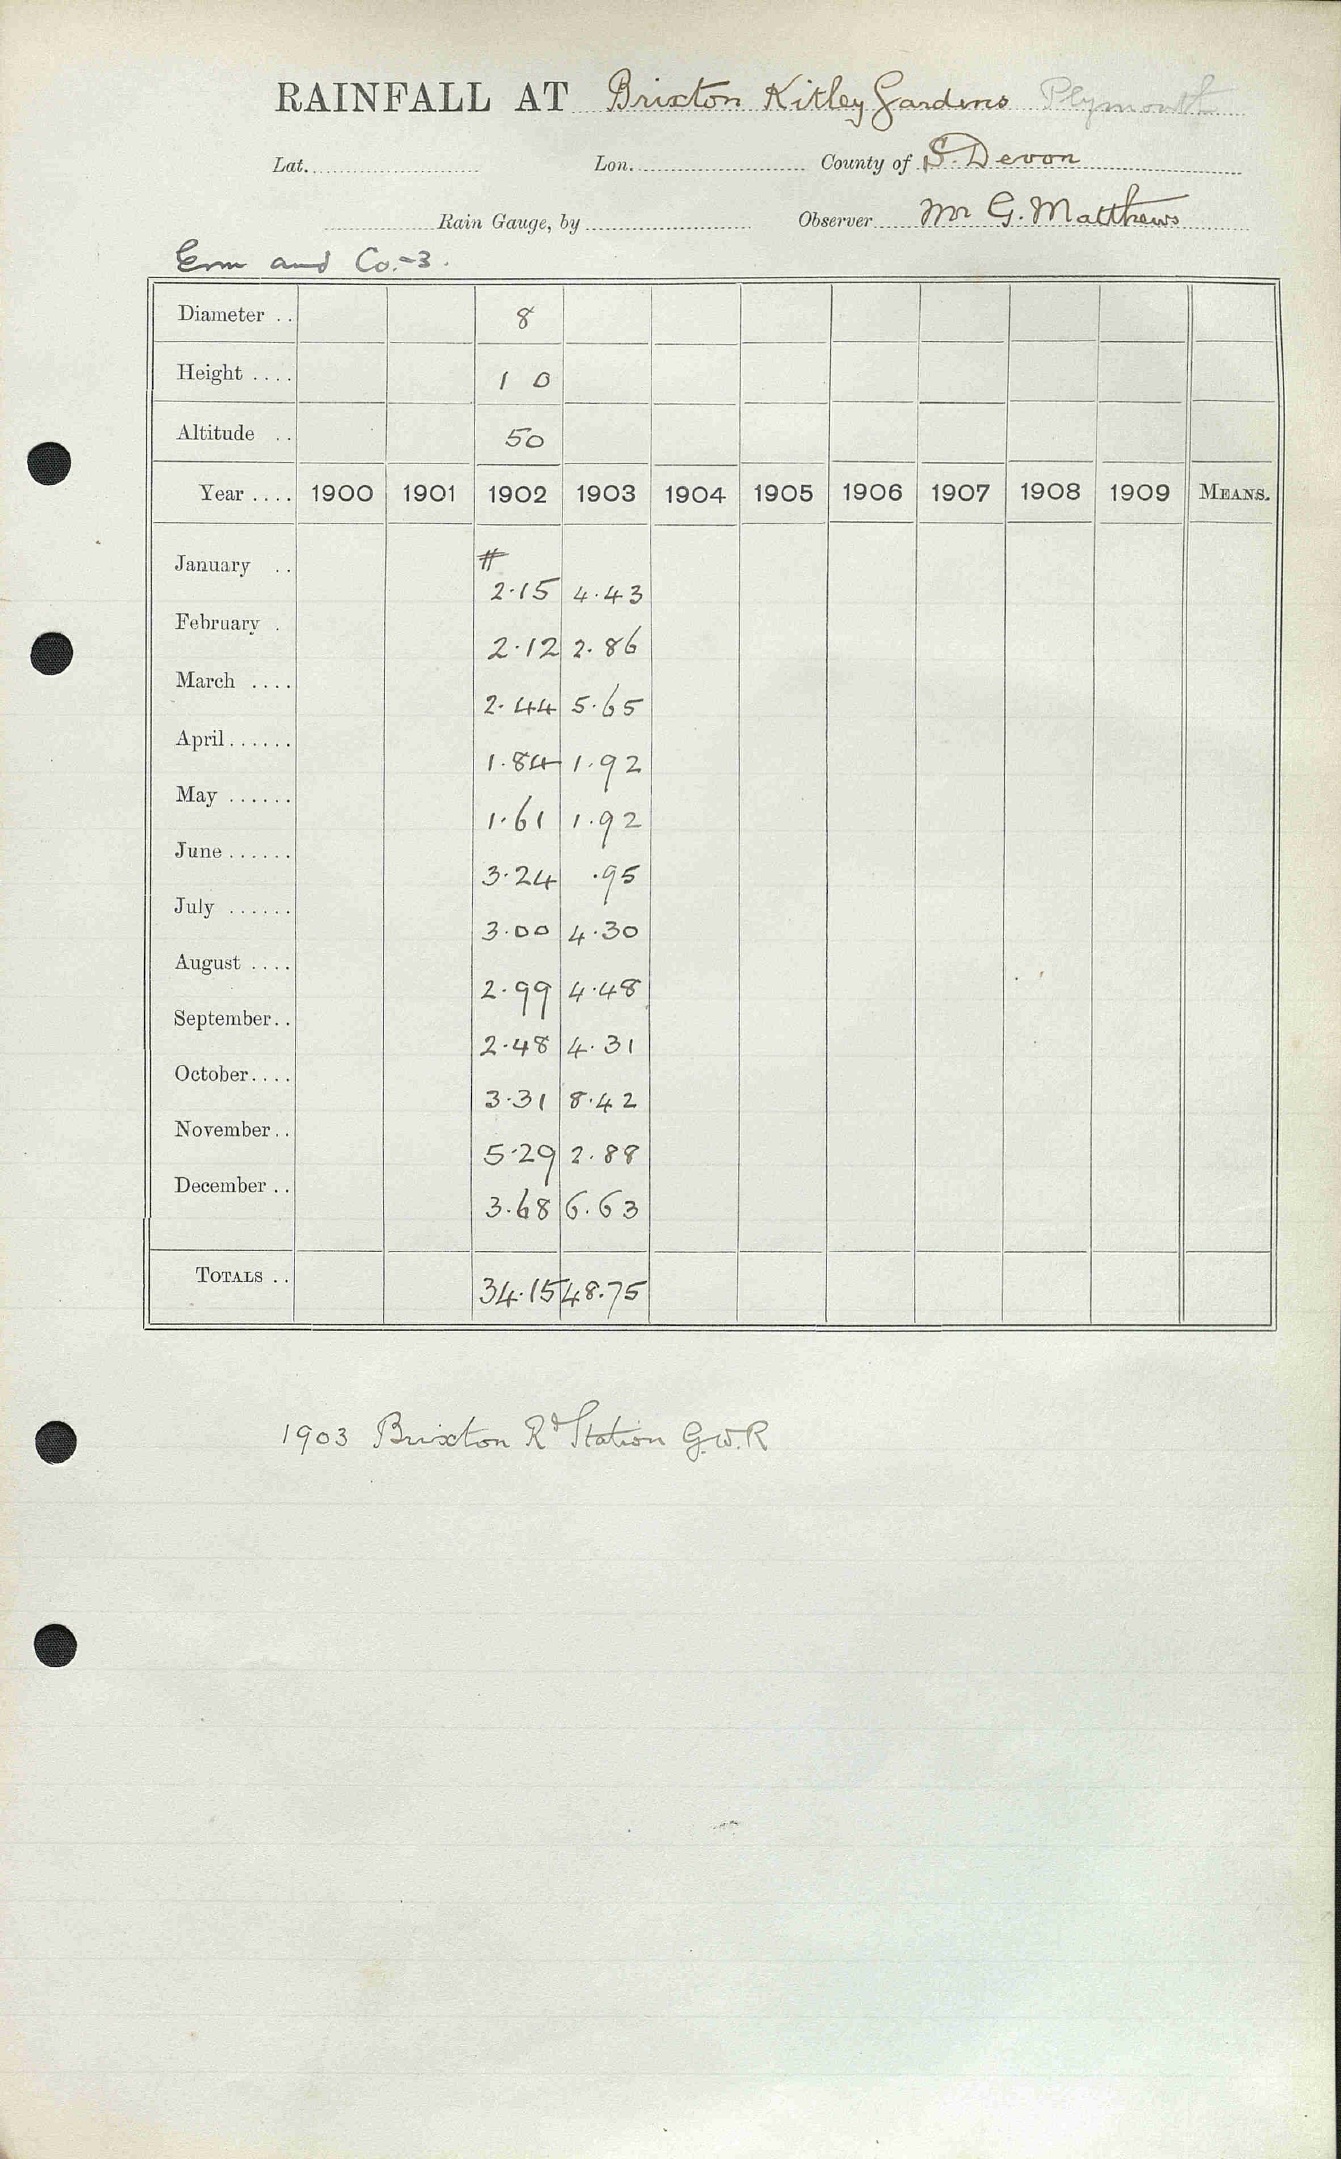 RAINFALL AT Brixton Kitley Gardens Plymouth
Lat. Lon. County of S. Devon
Rain Gauge, by Observer Mr G. Matthews
Erm and Co.-3.
Diameter .. 8
Height .... 1 0
Altitude .. 50
Year .... 1900 1901 1902 1903 1904 1905 1906 1907 1908 1909 MEANS.
#
January .. 2.15 4.43
February . 2.12 2.86
March .... 2.44 5.65
April...... 1.84 1.92
May ...... 1.61 1.92
June ...... 3.24 .95
July ...... 3.00 4.30
August .... 2.99 4.48
September.. 2.48 4.31
October.... 3.31 8.42
November.. 5.29 2.88
December .. 3.68 6.63
TOTALS .. 34.15 48.75
1903 Brixton Rd Station G.W.R